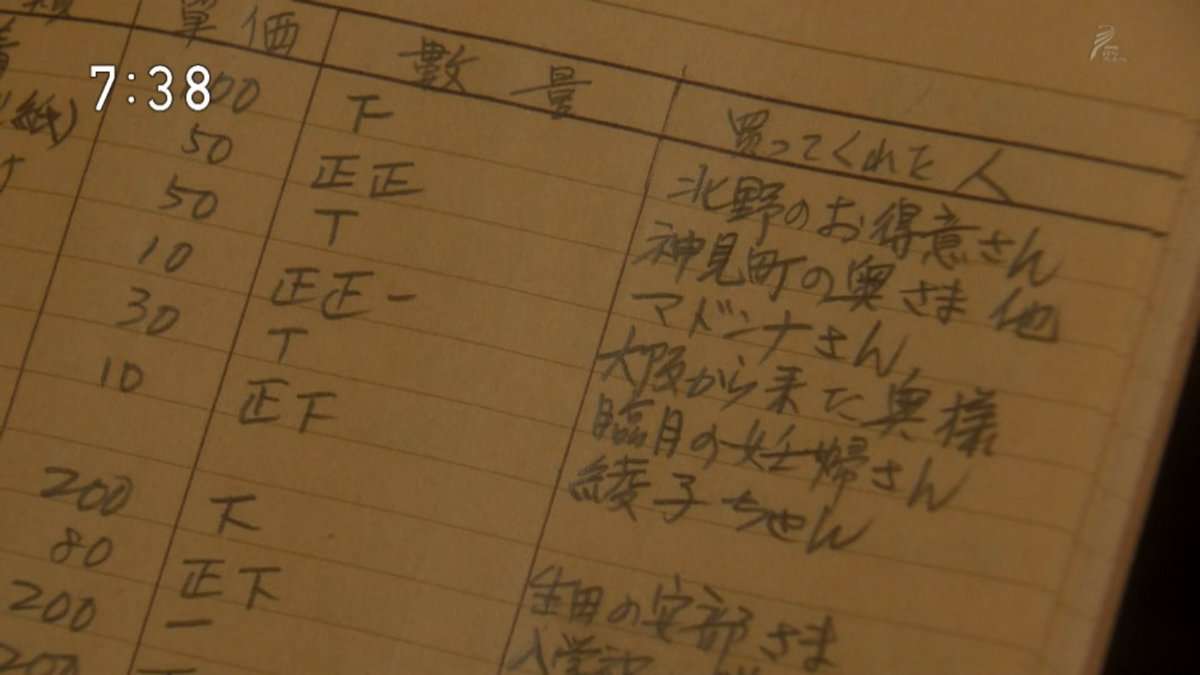 7:38
單価 数量 買ってくれた人
00 下 北野のお得意さん
紙) 50 正正 神見町の奥さま 他
50 T マドンナさん
10 正正一 大阪から来た奥様
30 T 臨月の妊婦さん
10 正下 綾子ちゃん
200 下 生田の安部さま
80 正下 入学
200 一
200